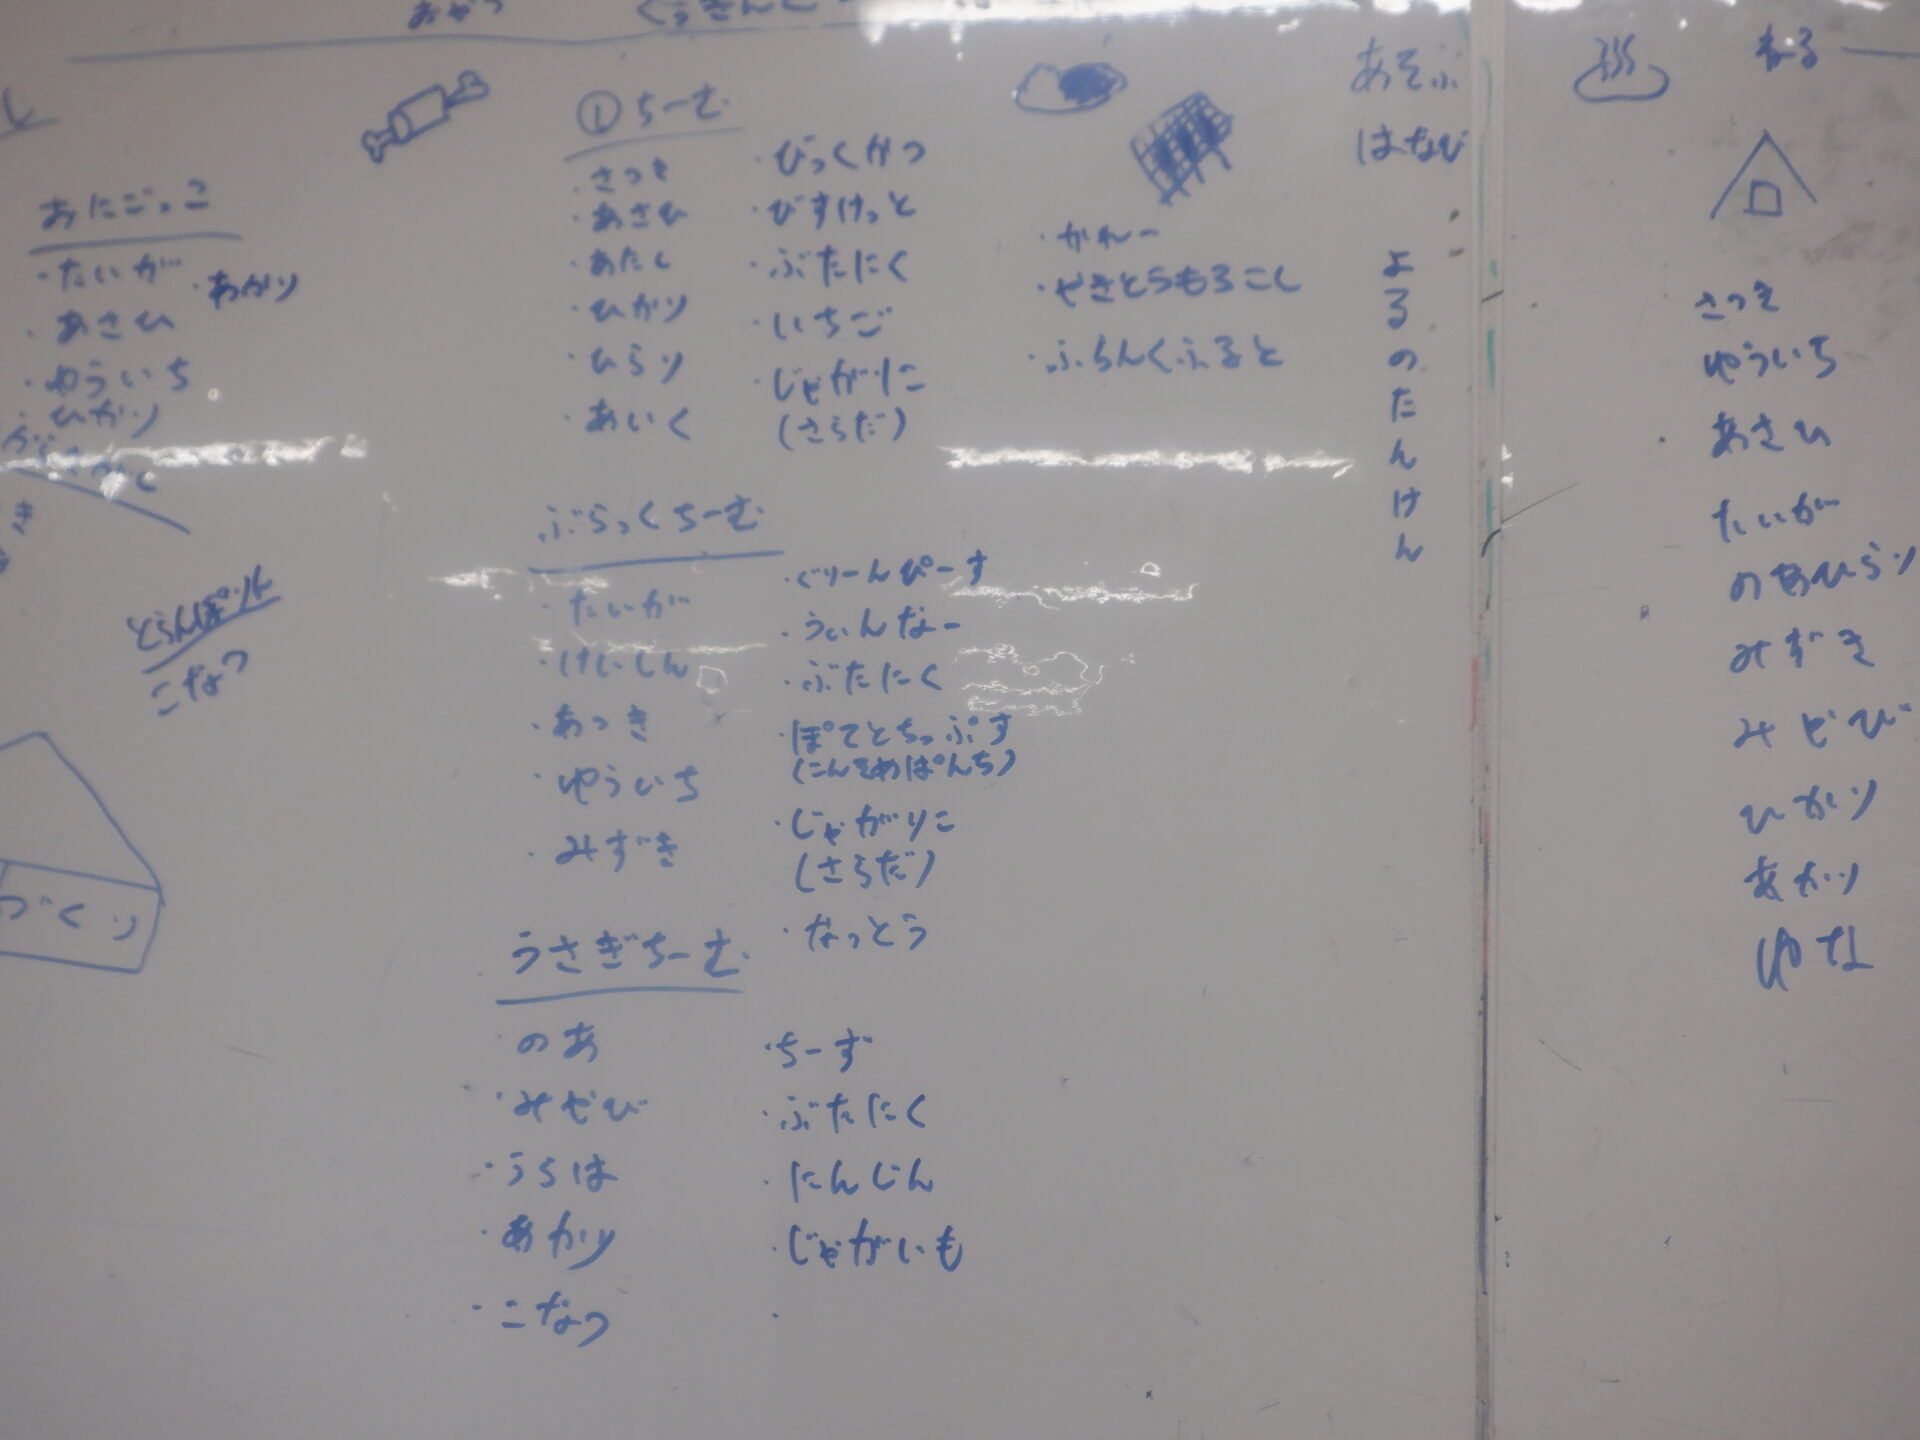 おやつ
おにごっこ
・たいが
・あかり
・あさひ
・ゆういち
・ひかり
とらんぽりん
こなつ
づくり
①ちーむ
・さつき
・あさひ
・あたし
・ひかり
・ひらり
・あいく
・びっくかつ
・びすけっと
・ぶたにく
・いちご
・じゃがりこ
(さらだ)
ぶらっくちーむ
・たいが
・けいしん
・あっき
・ゆういち
・みずき
・ぐりーんぴーす
・うぃんなー
・ぶたにく
・ぽてとちっぷす
(こんそめぱんち)
・じゃがりこ
(さらだ)
・なっとう
うさぎちーむ
・のあ
・みやび
・うちは
・あかり
・こなつ
・ちーず
・ぶたにく
・にんじん
・じゃがいも
・かれー
・やきとうもろこし
・ふらんくふると
あそぶ
はなび
よるのたんけん
ねる
さつき
ゆういち
あさひ
たいが
のあひらり
みずき
みやび
ひかり
あかり
ゆな